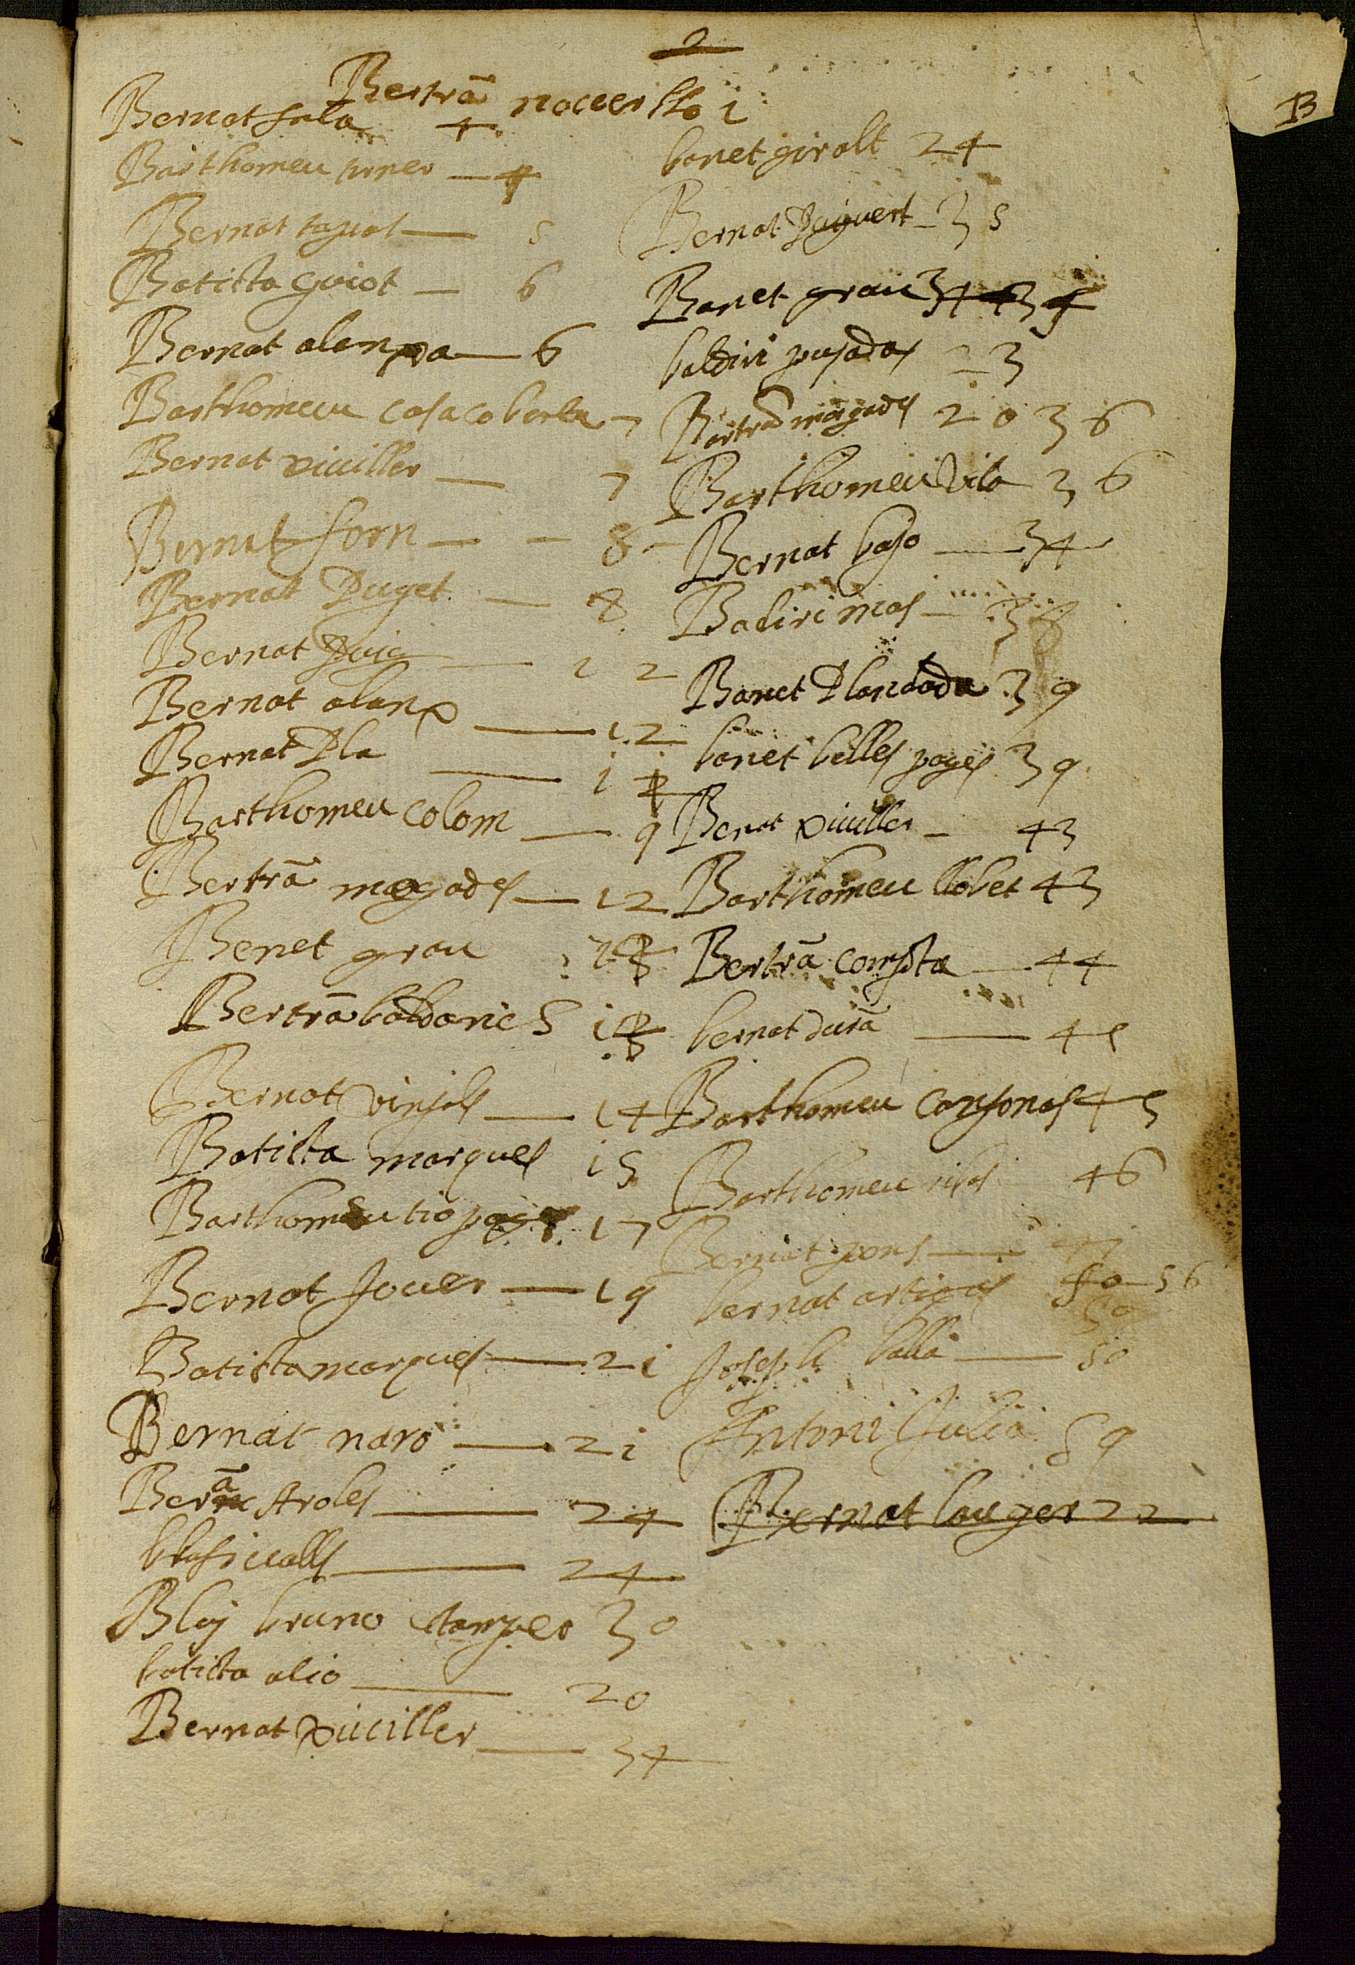 2
B
Bertrã noceer 1
Bernat sala 4
Barthomeu 4
Bernat 5
Batista Guiot — 6
Bernat alenxa — 6
Barthomeu casacoberta 7
Bernat viuiller — 7
Bernat forn — - 8
Bernat Puget — 8
Bernat Puig — 12
Bernat alenx — 12
Bernat Pla — 1
Barthomeu colom — 9
Bertrã magades — 12
Benet grau
Bertrã baldorie
Bernat vinyols — 14
Batista marques 15
Barthomeu 17
Bernat Jouer — 19
Batista marques — 21
Bernat naro — 21
stroles — 24
blasi ualls — 24
Bloy bruno stanyer 30
batista alio — 20
Bernat viuiller — 34
banet giralt 24
Bernat Puiguert - 35
Banet grau 34
baldiri pujadas 23
Bertrã magades 20 36
Barthomeu Vila 36
Bernat baso — 34
Badiri mas — 38
Banet Plandoda 39
banet belles pages 39
Benat viuiller - 43
Barthomeu llobet 43
Bertrã compta — 44
bernat durã — 45
Barthomeu casonas 45
Barthomeu ribas 46
Bernat pons — 47
bernat artigas 50 56
Joseph balla — 50
Antoni Julia 59
Bernat lauger 22